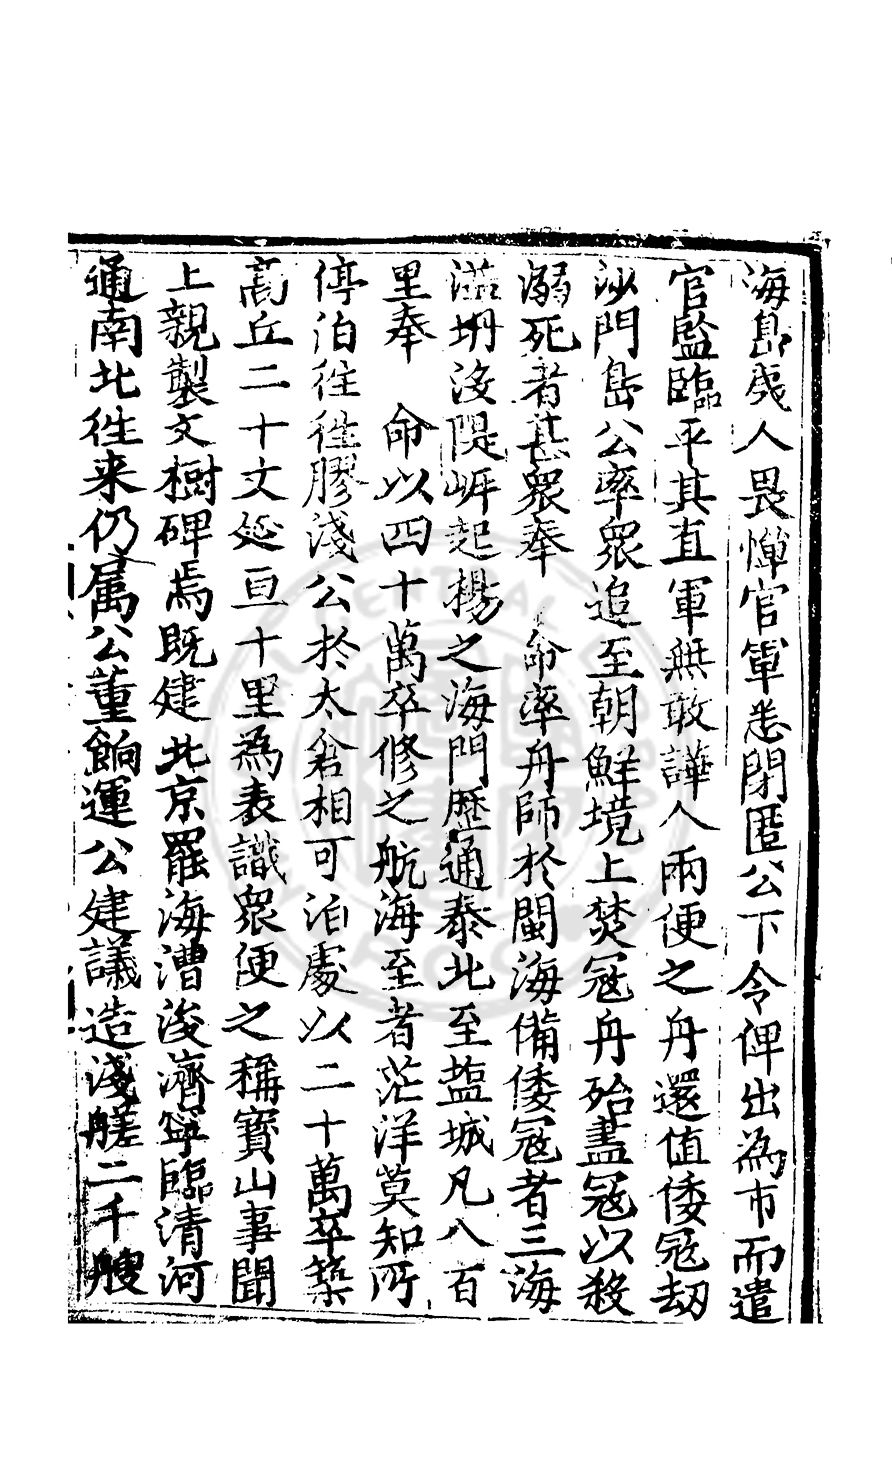 海島夷人畏憚官軍悉閉匿公下令俾出為市而遣
官監臨平其直軍無敢譁人兩便之舟還值倭冦刼
沙門島公率衆追至朝鮮境上焚冦舟殆盡冦以殺
溺死者甚衆奉 命率舟師於閩海備倭冦者三海
溢坍沒隄岸起揚之海門歷通泰北至塩城凡八百
里奉 命以四十萬卒修之航海至者茫洋莫知所
停泊往往膠淺公於太倉相可泊處以二十萬卒築
髙丘二十丈延亘十里為表識衆便之稱寳山事聞
上親製文樹碑焉既建北京罷海漕浚濟寧臨清河
通南北徃来仍属公董餉運公建議造淺艖二千艘